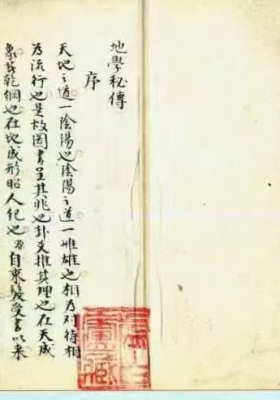 地學秘傳
序
天地之道一陰陽也陰陽之道一雌雄也相為對待相
為流行也是故圖書呈其兆也卦爻推其理也在天成
象昭乾綱也在地成形昭人紀也 自束髮受書以來